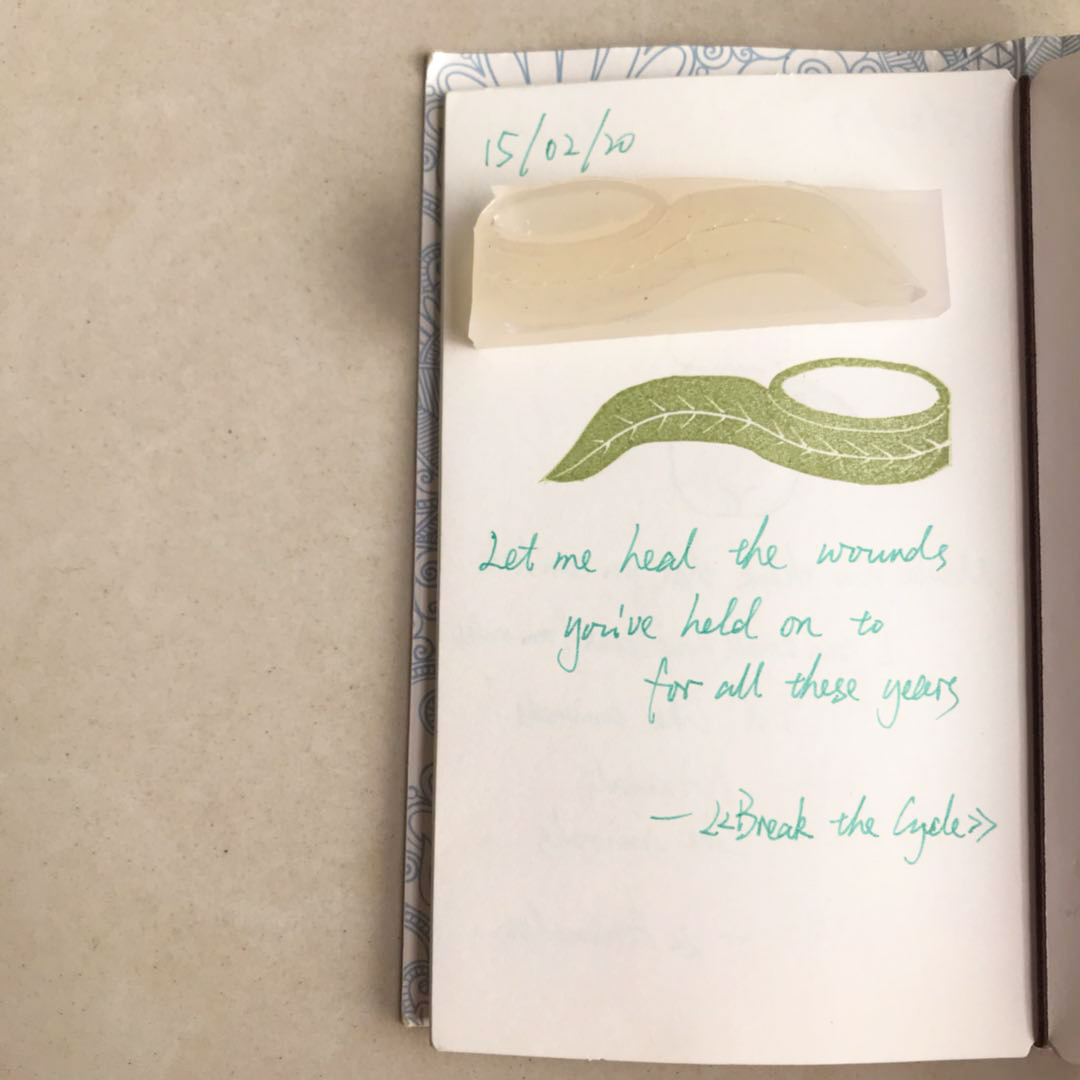 15/02/20
Let me heal the wounds
you've held on to
for all these years
— <<Break the Cycle>>